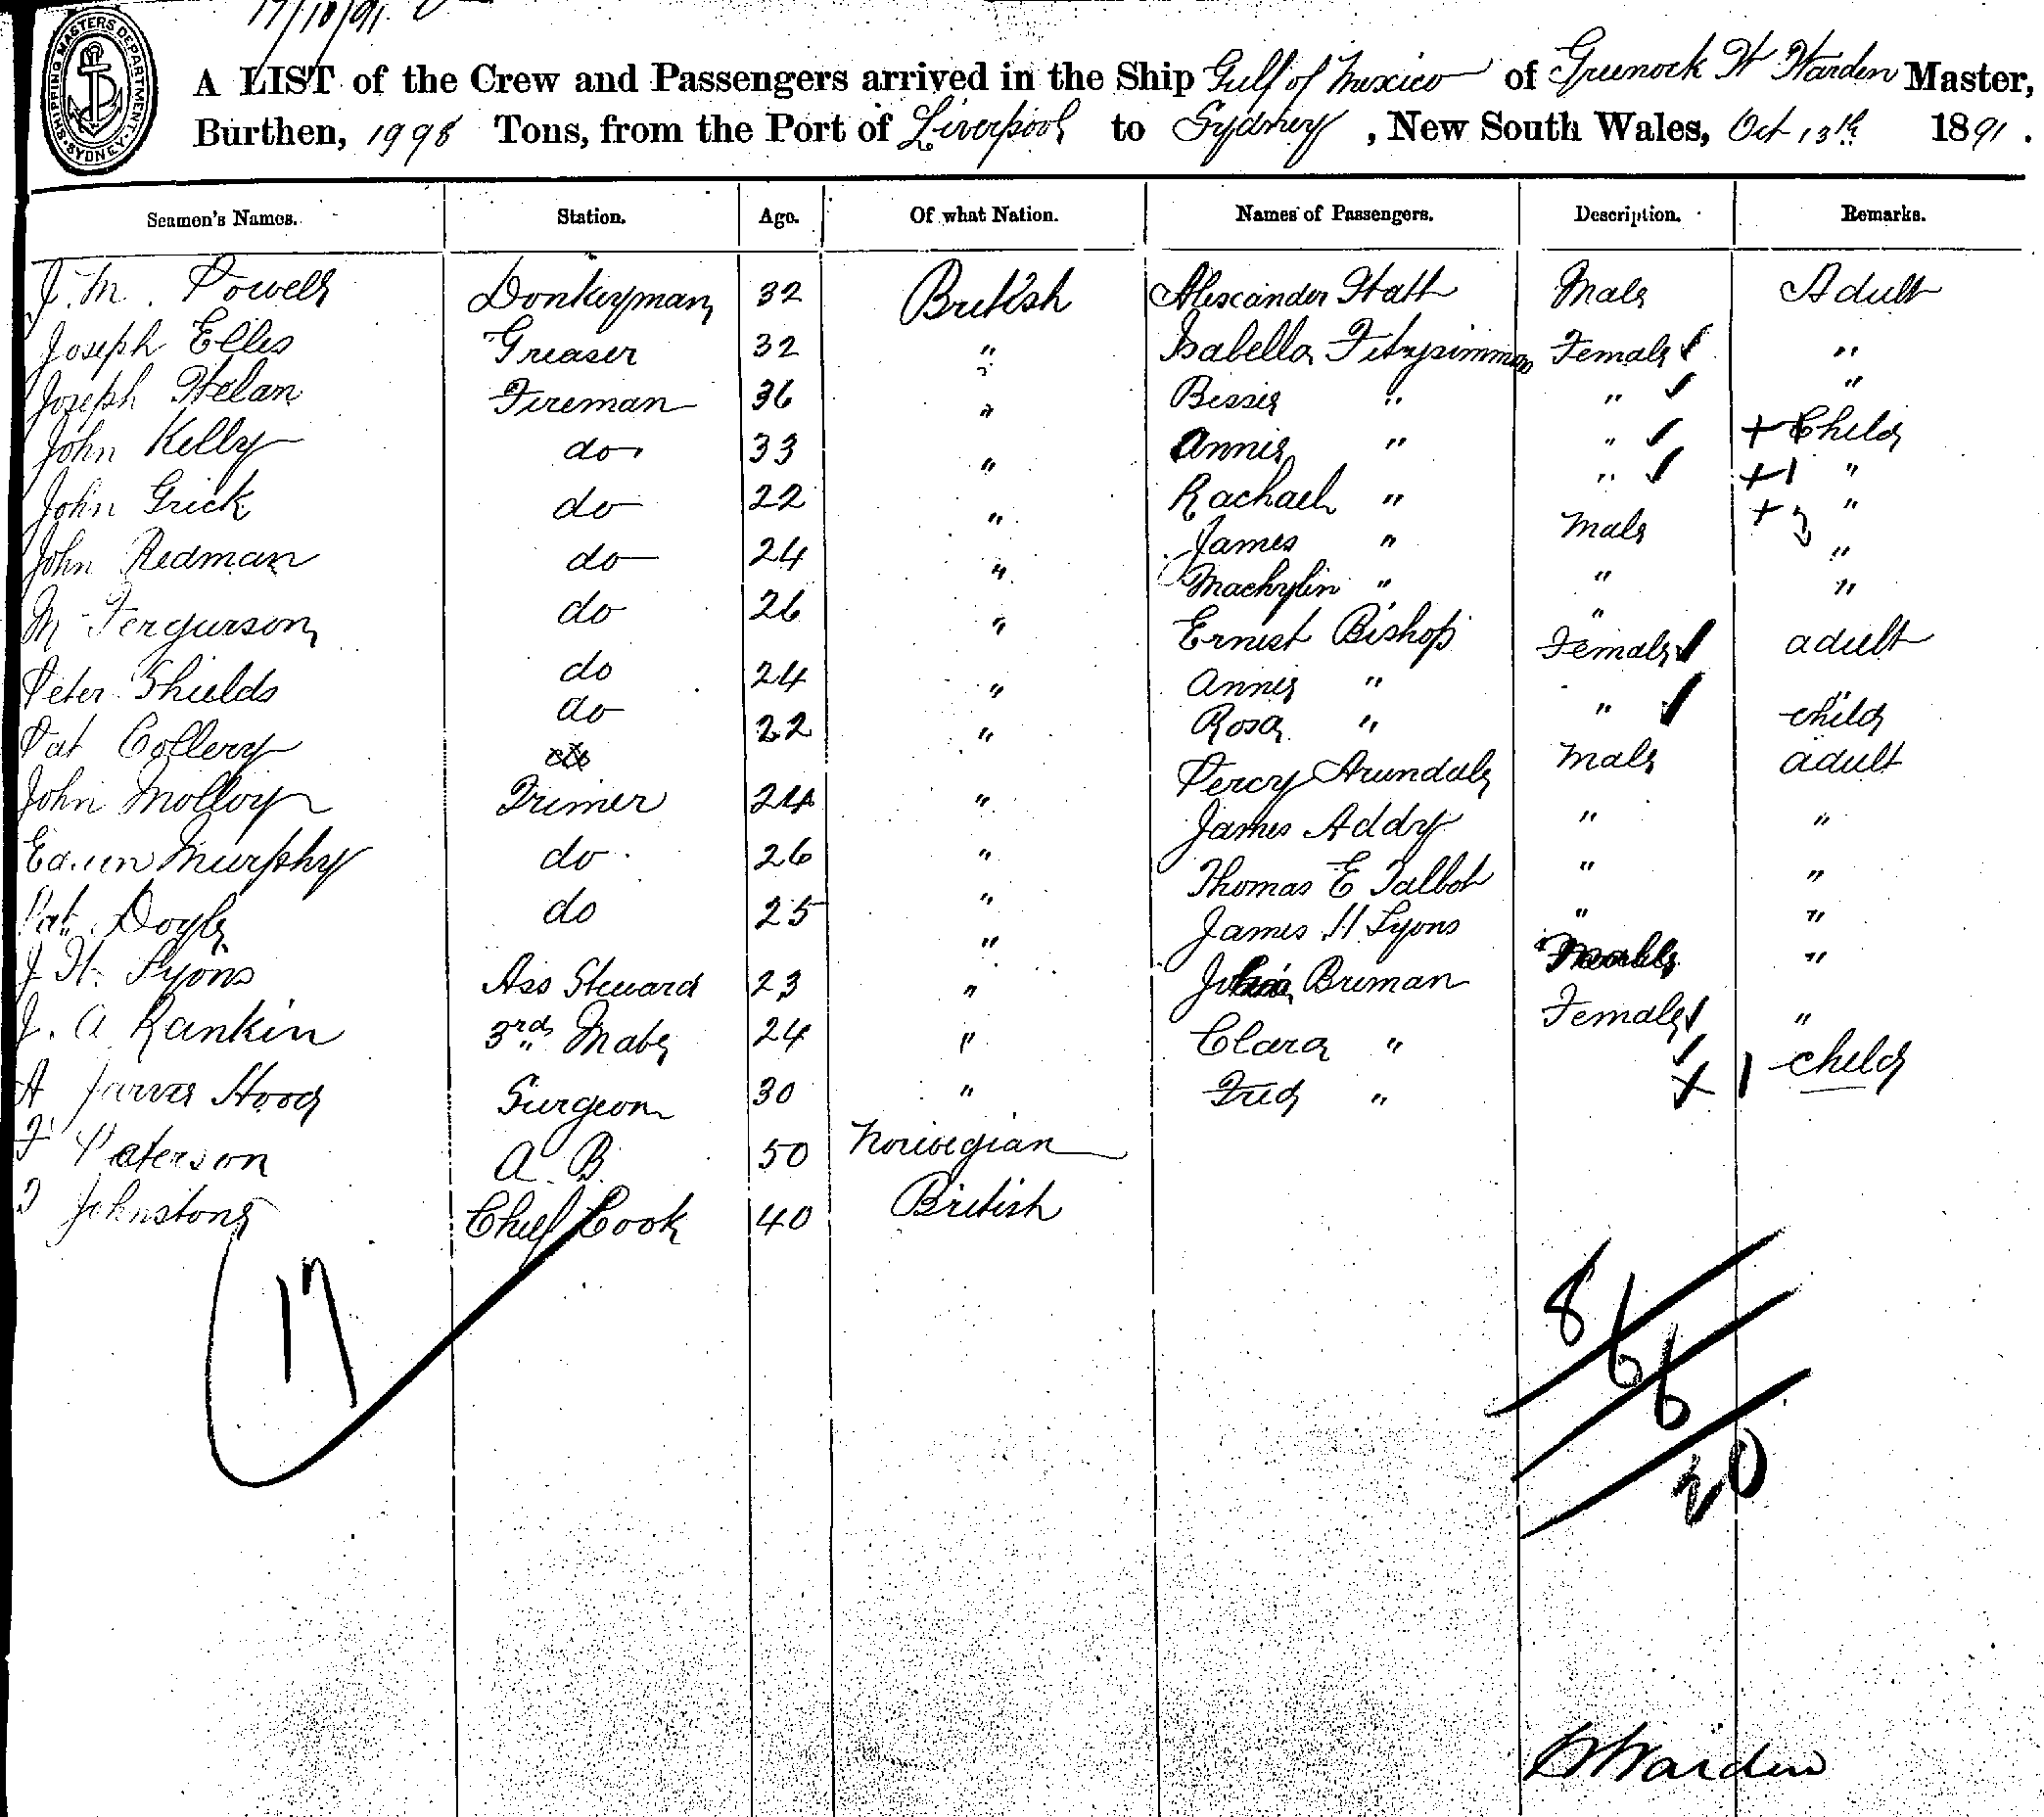 17/10/91
SHIPPING MASTERS DEPARTMENT. SYDNEY.
A LIST of the Crew and Passengers arrived in the Ship Gulf of Mexico of Greenock W Harden Master,
Burthen, 1998 Tons, from the Port of Liverpool to Sydney, New South Wales, Oct 13th 1891.
Seamen's Names. Station. Age. Of what Nation. Names of Passengers. Description. Remarks.
J. M. Powell Donkeyman 32 British Alexander Hatt Male Adult
Joseph Ellis Greaser 32 " Isabella Fitzsimmon Female "
Joseph Helan Fireman 36 " Bessie " " "
John Kelly do 33 " Annie " " + Child
John Grick do 22 " Rachael " " +1 "
John Redman do 24 " James " Male + "
M Fergurson do 26 " " " "
Peter Shields do 24 " Ernest Bishop " "
Pat Collery do 22 " Annie " Female adult
John Molloy Trimer 24 " Rosa " " child
Murphy do 26 " Percy Arundale Male adult
Pat Doyle do 25 " James Addy " "
J H. Lyons Ass Steward 23 " Thomas E Talbot " "
J. A Rankin 3rd Mate 24 " James H Lyons " "
A Jarvis Hood Surgeon 30 " Breman "
F Paterson A. B. 50 Norwegian Clara " Female "
Johnstone Chief Cook 40 British Fred " + 1 child
17
8
6
6
20
W Harden